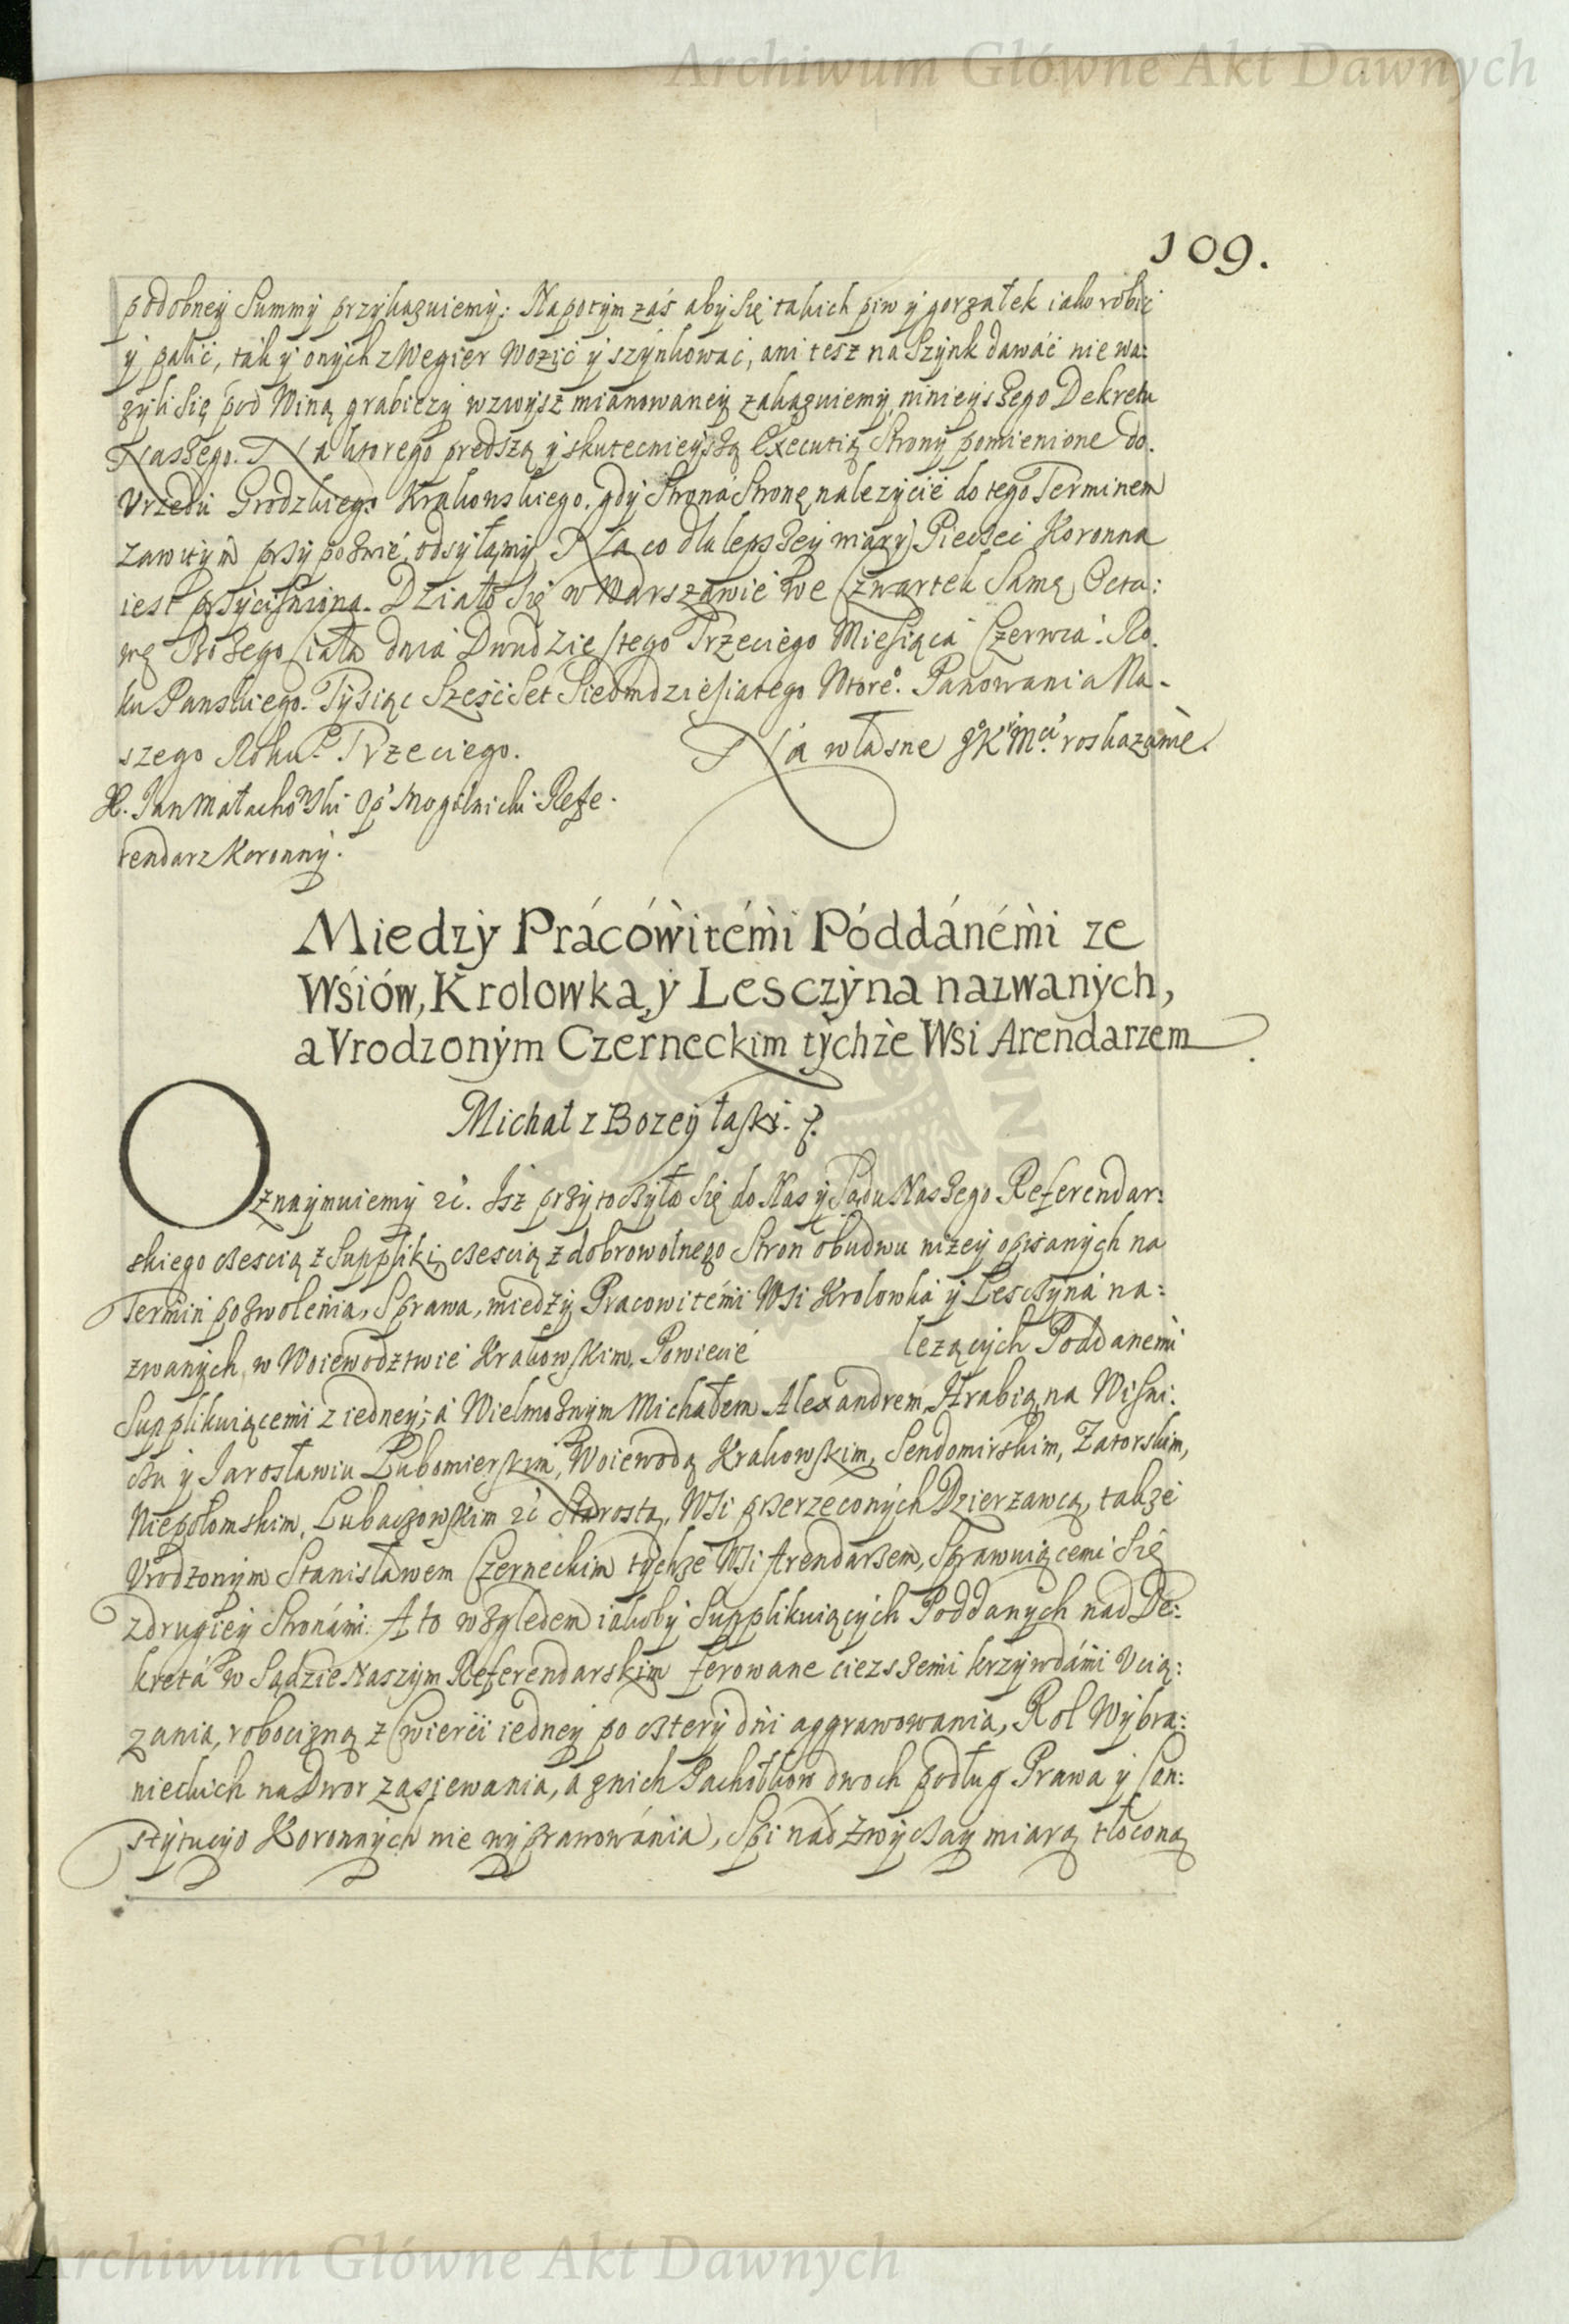 Archiwum Główne Akt Dawnych
109.
podobney Summy przykazuiemy. Napotym zaś aby się takich piw y gorzałek iako robić
y palić, ták y onych z Wegier Wozić y szynkować, ani tesz na Szynk dawáć nie wa:
zyli się pod Winą grabiezy wzwysz mianowaney zakazuiemy, ninieyszego Dekretu
Naszego. Na ktorego predszą y skutecnieyszą Executią Strony pomienione do
Vrzedu Grodzkiego Krakowskiego, gdy Strona Stronę nalezycie do tego Terminem
zawitym przypozwie, odsyłamy. Na co dla lepszey wiary Pieczęć Koronna
iest przycisniona. Działo się w Warszawie we Czwartek Samą Octa:
wę Bożego Ciała dnia Dwudziestego Trzeciego Miesiąca Czerwca. Ro.
ku Panskiego. Tysiąc Sześćset Siedmdziesiątego Wtoreº. Panowania Na-
szego Roku Trzeciego.
Na własne JKMci roskazanie.
X. Jan Małachowski Op. Mogilnicki Refe.
rendarz Koronny.
Miedzy Prácówitémi Póddánémi ze
Wśiów, Krolowka, y Lesczyna nazwanych,
a Vrodzonym Czerneckim tychże Wsi Arendarzem.
Michał z Bozey łaski.
Oznaymuiemy etc. Isz przytoczyła się do Nas y Sądu Naszego Referendar:
skiego czescią z Suppliki, czescią z dobrowolnego Stron obudwu nizey opisanych na
Termin pozwolenia, Sprawa, miedzy Pracowitemi Wsi Krolowka y Lesczyna na:
zwanych, w Woiewodztwie Krakowskim, Powiecie lezących Poddanemi
Supplikuiącemi z iedney; á Wielmożnym Michałem Alexandrem, Hrabią na Wiśni:
czu y Jarosławiu Lubomierskim, Woiewodą Krakowskim, Sendomirskim, Zatorskim,
Niepołomskim, Lubaczowskim etc Starostą, Wsi przerzeconych Dzierzawcą, także
Vrodzonym Stanisławem Czerneckim tychże Wsi Arendarzem, Sprawuiącemi się
z drugiey Stronámi. A to względem iakoby Supplikuiących Poddanych nad De:
kretá w Sądzie Naszym Referendarskim ferowane ciezszemi krzywdámi Vcią:
zania, robocizną z Cwierci iedney po cztery dni aggrawowania, Rol Wybra:
nieckich na Dwor zasiewania, a z nich Pachołkow dwoch podług Prawa y Con:
stytucyo Koronnych nie wyprawowánia, Spi nád zwyczay miarą tłoconą
Archiwum Główne Akt Dawnych